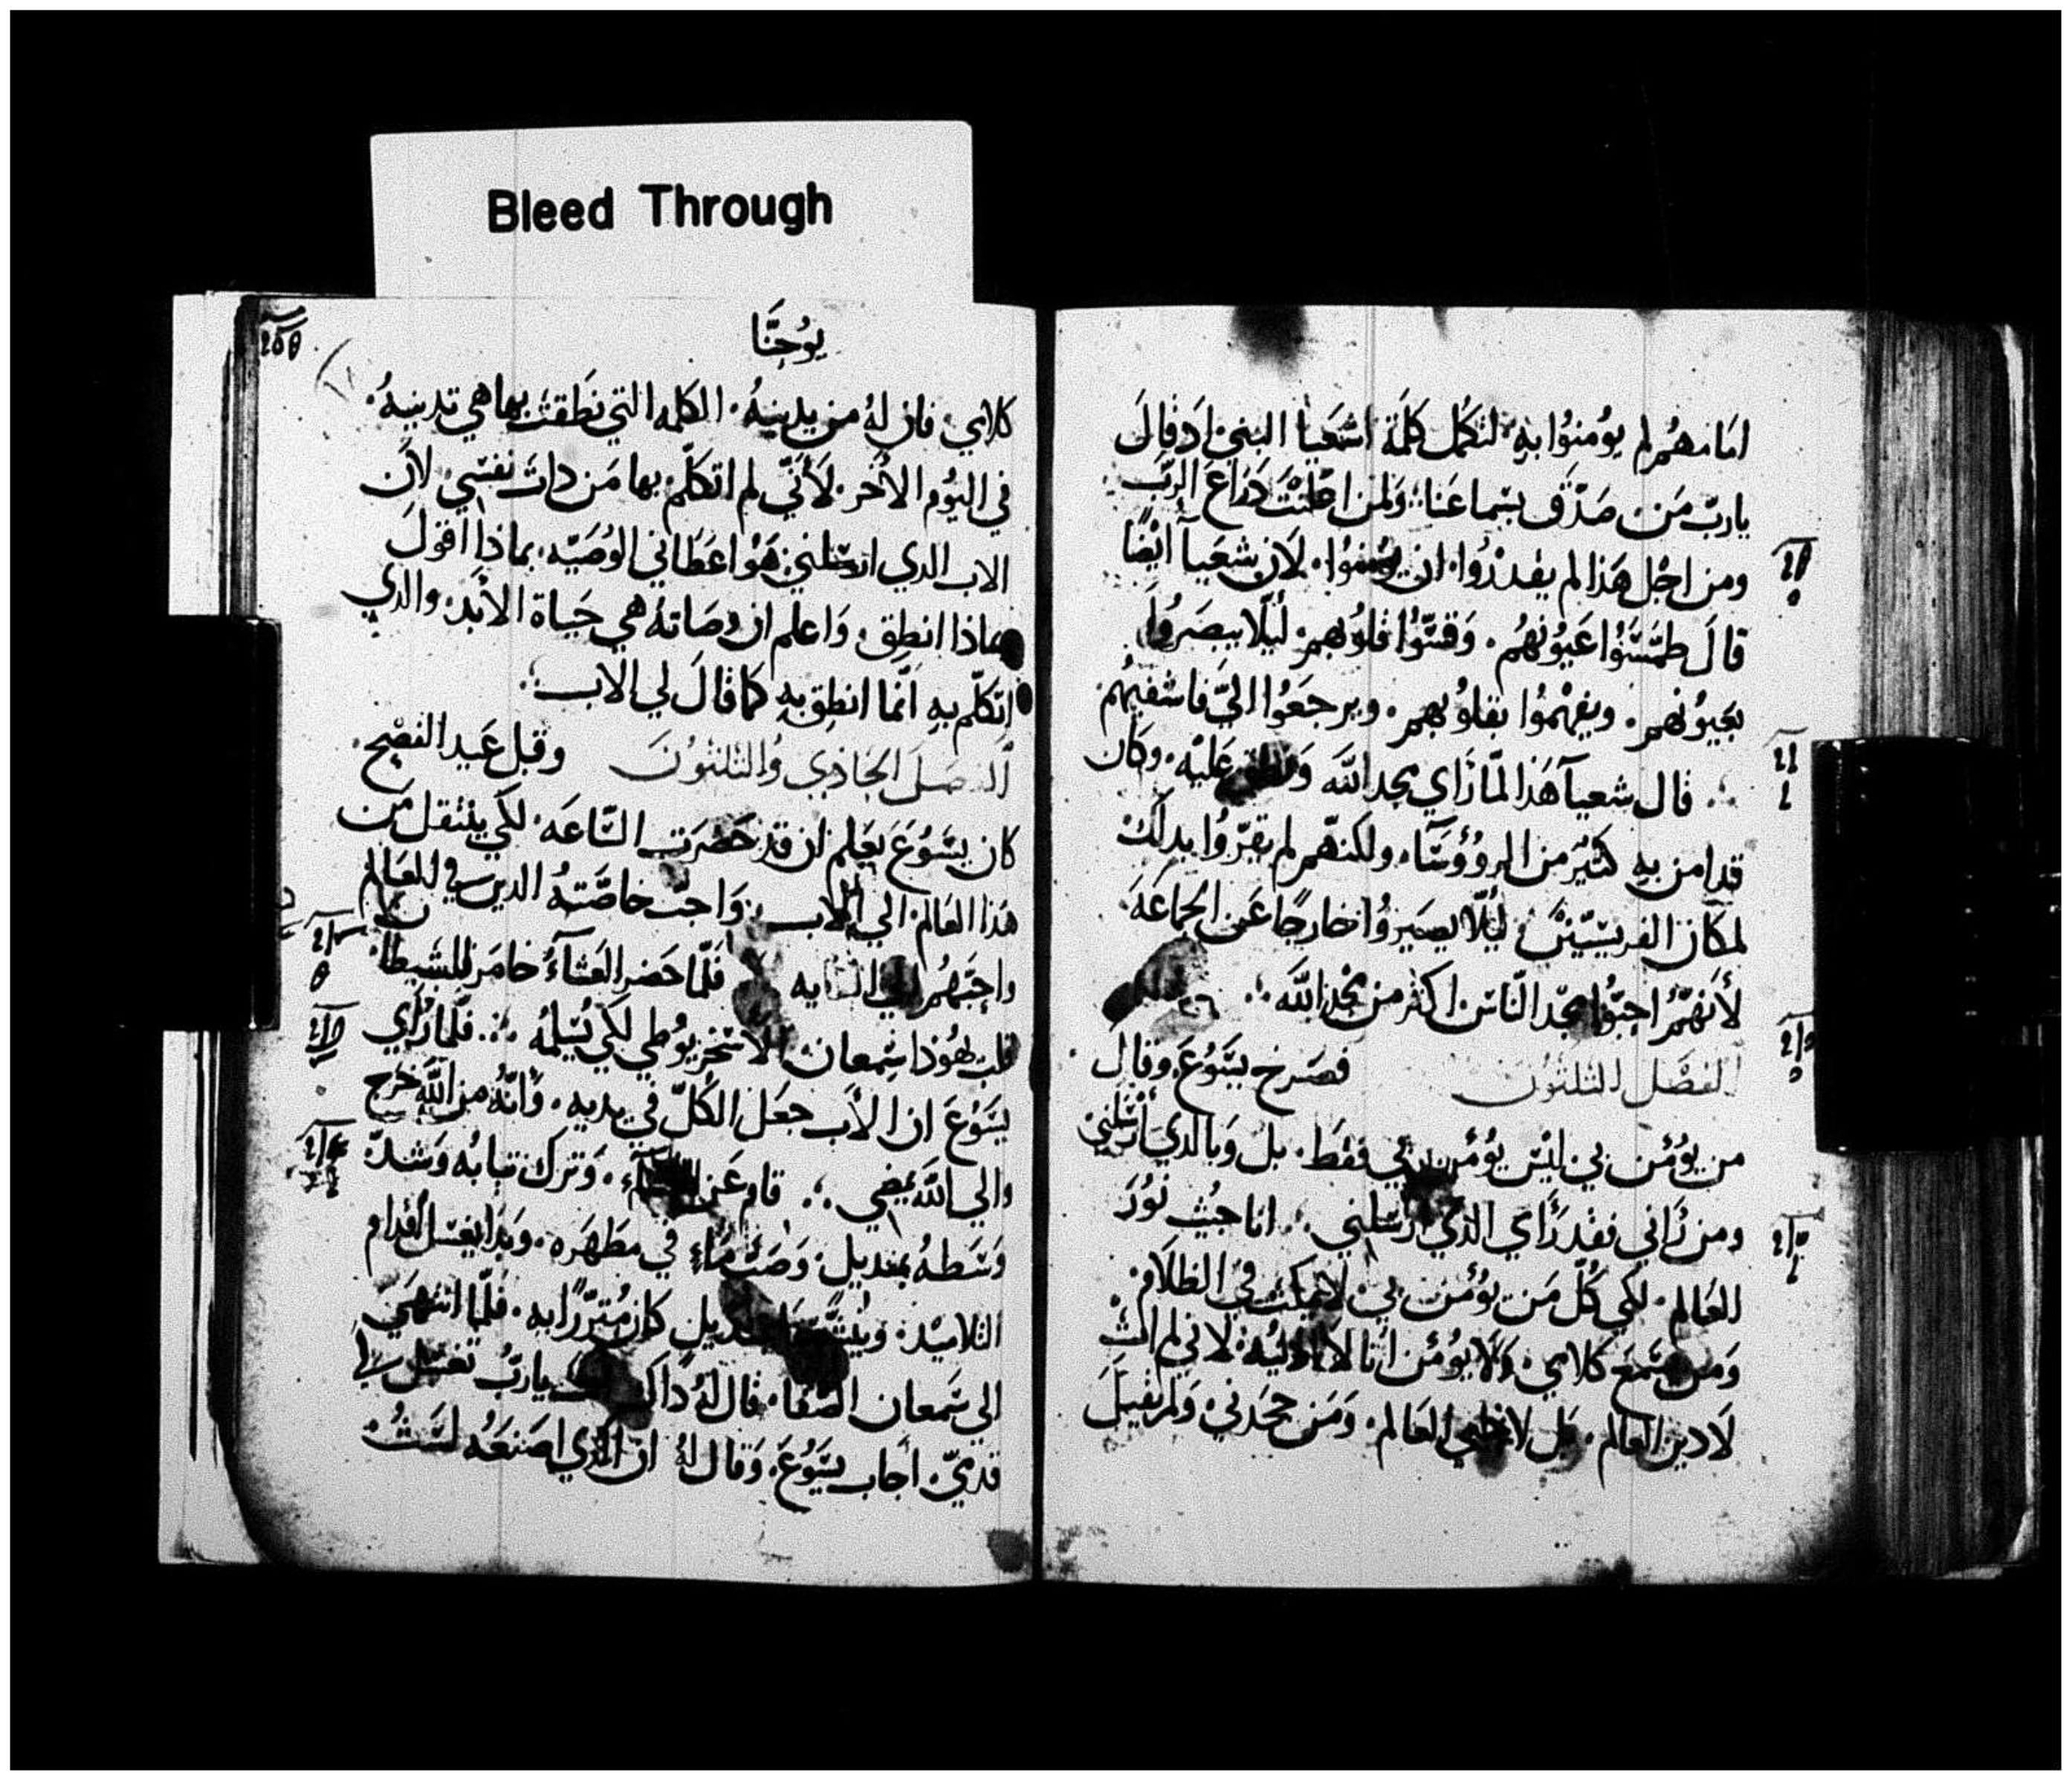 Bleed Through
امامهم لم يومنوا به لتكمل كلمة اشعيا النبي اد قال
يارب من صدق بسماعنا ولمن اعلنت دراع الرب
ومن اجل هذا لم يقدروا ان يومنوا لان شعيا ايضا
قال طمسوا عيونهم وقسوا قلوبهم ليلا يبصروا
بعيونهم ويفهموا بقلوبهم ويرجعوا الي فاشفيهم
قال شعيا هذا لما راي مجد الله عليه وكان
قد امن به كثير من الروؤسا ولكنهم لم يقروا بدلك
لمكان الفريسيين ليلا يصيروا خارجا عن الجماعة
لأنهم احبوا مجد الناس اكثر من مجد الله
الفصل الثلثون فصرخ يسوع وقال
من يؤمن بي ليس يؤمن بي فقط بل وبالدي ارسلني
ومن رآني فقد رأي الذي ارسلني انا جيت نور
العالم لكي كل من يؤمن بي لا يمكث في الظلام
ومن سمع كلامي ولا يؤمن انا لا ادينه لاني لم ات
لادين العالم بل لاحيي العالم ومن جحدني ولم يقبل
يوحنا
كلامي فان له من يدينه الكلمه التي نطقت بها هي تدينه
في اليوم الأخر لأني لم اتكلم بها من دات نفسي لأن
الاب الدي ارسلني هو اعطاني الوصيه بمادا اقول
وبماذا انطق واعلم ان وصاته هي حياة الأبد والدي
اتكلم به انما انطق به كما قال لي الاب
الفصل الحادي والثلثون وقبل عيد الفصح
كان يسوع يعلم ان قد حضرت الساعه لكي ينتقل من
هذا العالم الي الاب واحب خاصته الدين في العالم
واحبهم الي الغايه فلما حضر العشآء خامر الشيطان
قلب يهودا سمعان الاسخريوطي لكي يسلمه فلما رأي
يسوع ان الأب جعل الكل في يديه وأنه من الله خرج
والي الله يمضي قام عن وترك تيابه وشد
وسطه بمنديل وصب ماء في مطهره وبدا يغسل اقدام
التلاميد كان متزرا به فلما انتهي
الي سمعان الصفا قال له داك يارب تغسل لي
قدمي اجاب يسوع وقال له ان الذي اصنعه لست